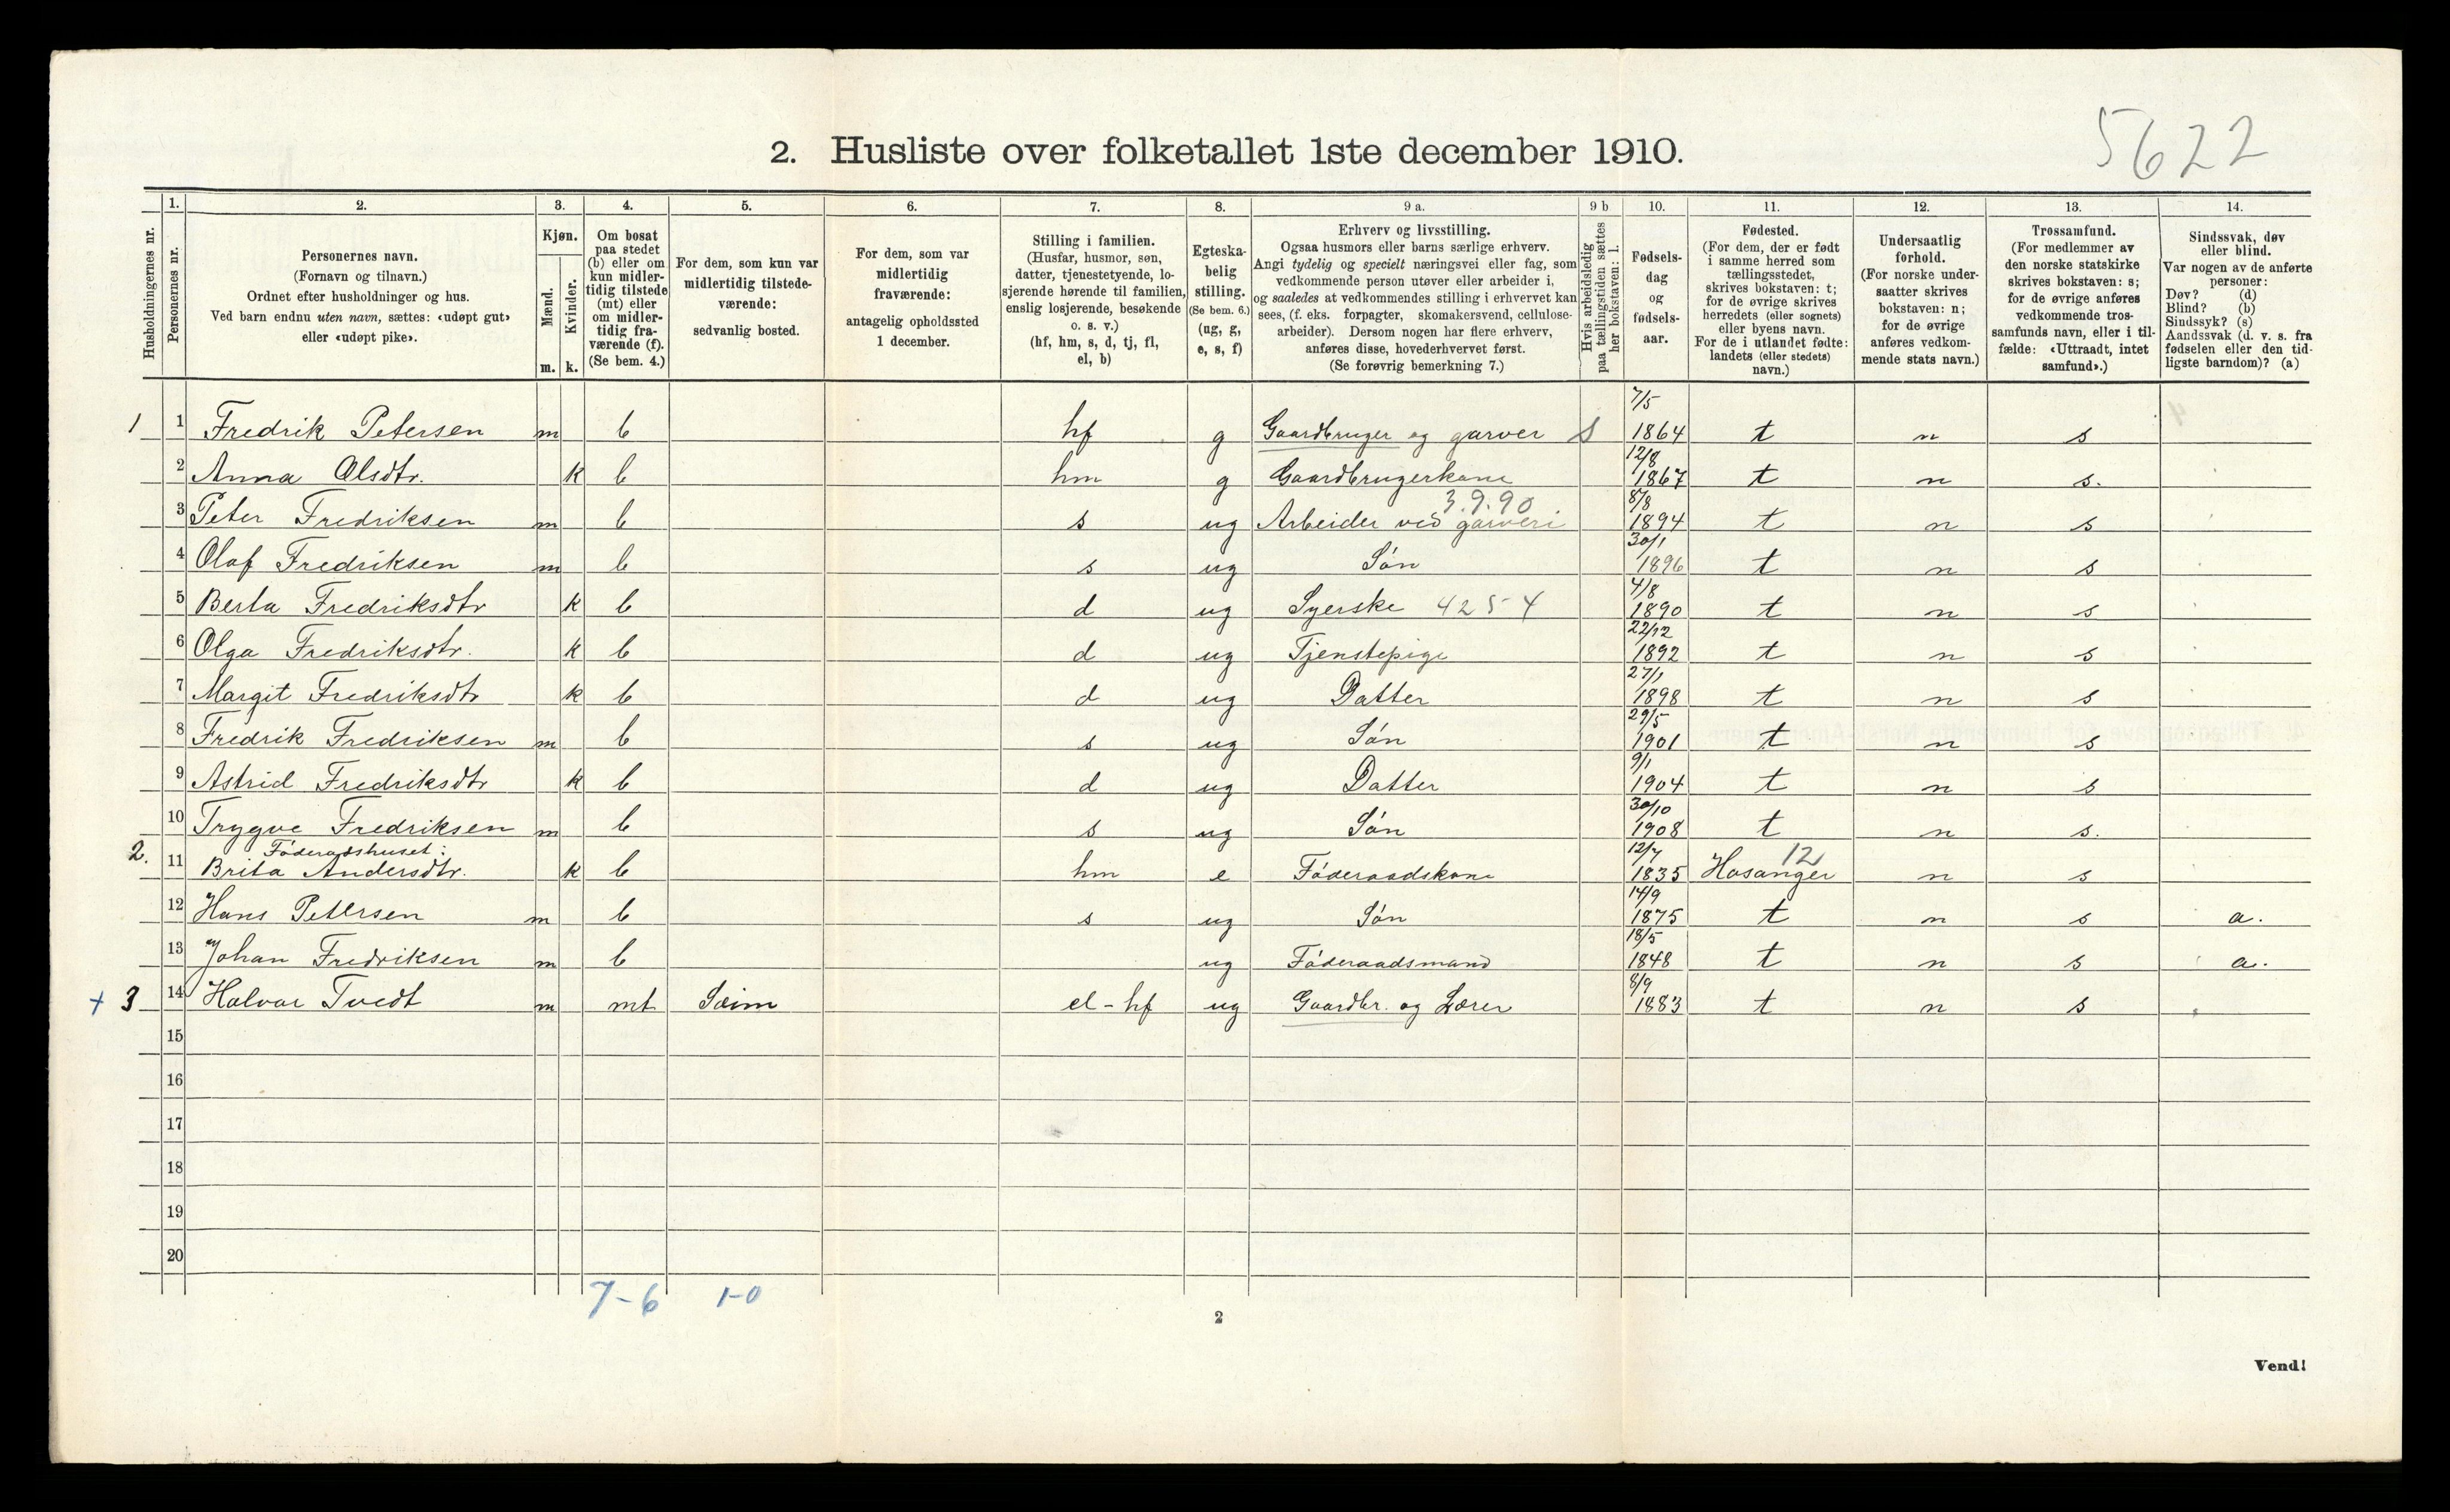 5622
2. Husliste over folketallet 1ste december 1910.
1. 2. 3. 4. 5. 6. 7. 8. 9 a. 9 b 10. 11. 12. 13. 14.
Husholdningernes nr.
Personernes nr.
Personernes navn.
(Fornavn og tilnavn.)
Ordnet efter husholdninger og hus.
Ved barn endnu uten navn, sættes: «udøpt gut»
eller «udøpt pike».
Kjøn.
Mænd.
Kvinder.
m. k.
Om bosat
paa stedet
(b) eller om
kun midler-
tidig tilstede
(mt) eller
om midler-
tidig fra-
værende (f).
(Se bem. 4.)
For dem, som kun var
midlertidig tilstede-
værende:
sedvanlig bosted.
For dem, som var
midlertidig
fraværende:
antagelig opholdssted
1 december.
Stilling i familien.
(Husfar, husmor, søn,
datter, tjenestetyende, lo-
sjerende hørende til familien,
enslig losjerende, besøkende
o. s. v.)
(hf, hm, s, d, tj, fl,
el, b)
Egteska-
belig
stilling.
(Se bem. 6.)
(ug, g,
e, s, f)
Erhverv og livsstilling.
Ogsaa husmors eller barns særlige erhverv.
Angi tydelig og specielt næringsvei eller fag, som
vedkommende person utøver eller arbeider i,
og saaledes at vedkommendes stilling i erhvervet kan
sees, (f. eks. forpagter, skomakersvend, cellulose-
arbeider). Dersom nogen har flere erhverv,
anføres disse, hovederhvervet først.
(Se forøvrig bemerkning 7.)
Hvis arbeidsledig
paa tællingstiden sættes
her bokstaven: l.
Fødsels-
dag
og
fødsels-
aar.
Fødested.
(For dem, der er født
i samme herred som
tællingsstedet,
skrives bokstaven: t;
for de øvrige skrives
herredets (eller sognets)
eller byens navn.
For de i utlandet fødte:
landets (eller stedets)
navn.)
Undersaatlig
forhold.
(For norske under-
saatter skrives
bokstaven: n;
for de øvrige
anføres vedkom-
mende stats navn.)
Trossamfund.
(For medlemmer av
den norske statskirke
skrives bokstaven: s;
for de øvrige anføres
vedkommende tros-
samfunds navn, eller i til-
fælde: «Uttraadt, intet
samfund».)
Sindssvak, døv
eller blind.
Var nogen av de anførte
personer:
Døv? (d)
Blind? (b)
Sindssyk? (s)
Aandssvak (d. v. s. fra
fødselen eller den tid-
ligste barndom)? (a)
1 1 Fredrik Petersen m b hf g Gaardbruger og garver s 7/5 1864 t n s
2 Anna Olsdtr. k b hm g Gaardbrugerkone 12/8 1867 t n s.
3.9.90
3 Peter Fredriksen m b s ug Arbeider ved garveri 8/8 1894 t n s
4 Olaf Fredriksen m b s ug Søn 30/1 1896 t n s
5 Berta Fredriksdtr k b d ug Syerske 4254 4/8 1890 t n s
6 Olga Fredriksdtr. k b d ug Tjenstepige 22/12 1892 t n s
7 Margit Fredriksdtr k b d ug Datter 27/1 1898 t n s
8 Fredrik Fredriksen m b s ug Søn 29/5 1901 t n s
9 Astrid Fredriksdtr k b d ug Datter 9/1 1904 t n s
10 Trygve Fredriksen m b s ug Søn 30/10 1908 t n s.
Føderaadshuset:
2. 11 Brita Andersdtr. k b hm e Føderaadskone 12/7 1835 Hosanger 12 n s
12 Hans Petersen m b s ug Søn 14/9 1875 t n s a.
13 Johan Fredriksen m b ug Føderaadsmand 18/5 1848 t n s a.
+ 3 14 Halvor Tvedt m mt Seim el-hf ug Gaardbr. og Lærer 8/9 1883 t n s
15
16
17
18
19
20
7-6 1-0
2
Vend!